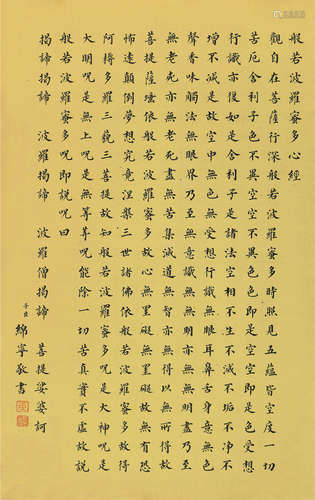 般若波羅蜜多心經
觀自在菩薩行深般若波羅蜜多時照見五蘊皆空度一切
苦厄舍利子色不異空空不異色色即是空空即是色受想
行識亦復如是舍利子是諸法空相不生不滅不垢不淨不
增不減是故空中無色無受想行識無眼耳鼻舌身意無色
聲香味觸法無眼界乃至無意識無無明亦無無明盡乃至
無老死亦無老死盡無苦集滅道無智亦無得以無所得故
菩提薩埵依般若波羅蜜多故心無罣礙無罣礙故無有恐
怖遠顛倒夢想究竟涅槃三世諸佛依般若波羅蜜多故得
阿耨多羅三藐三菩提故知般若波羅蜜多是大神呪是
大明呪是無上呪是無等等呪能除一切苦真實不虛故說
般若波羅蜜多呪即說呪曰
揭諦揭諦 波羅揭諦 波羅僧揭諦 菩提娑婆訶
子臣綿寧敬書